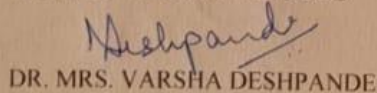 Deshpande
DR. MRS. VARSHA DESHPANDE